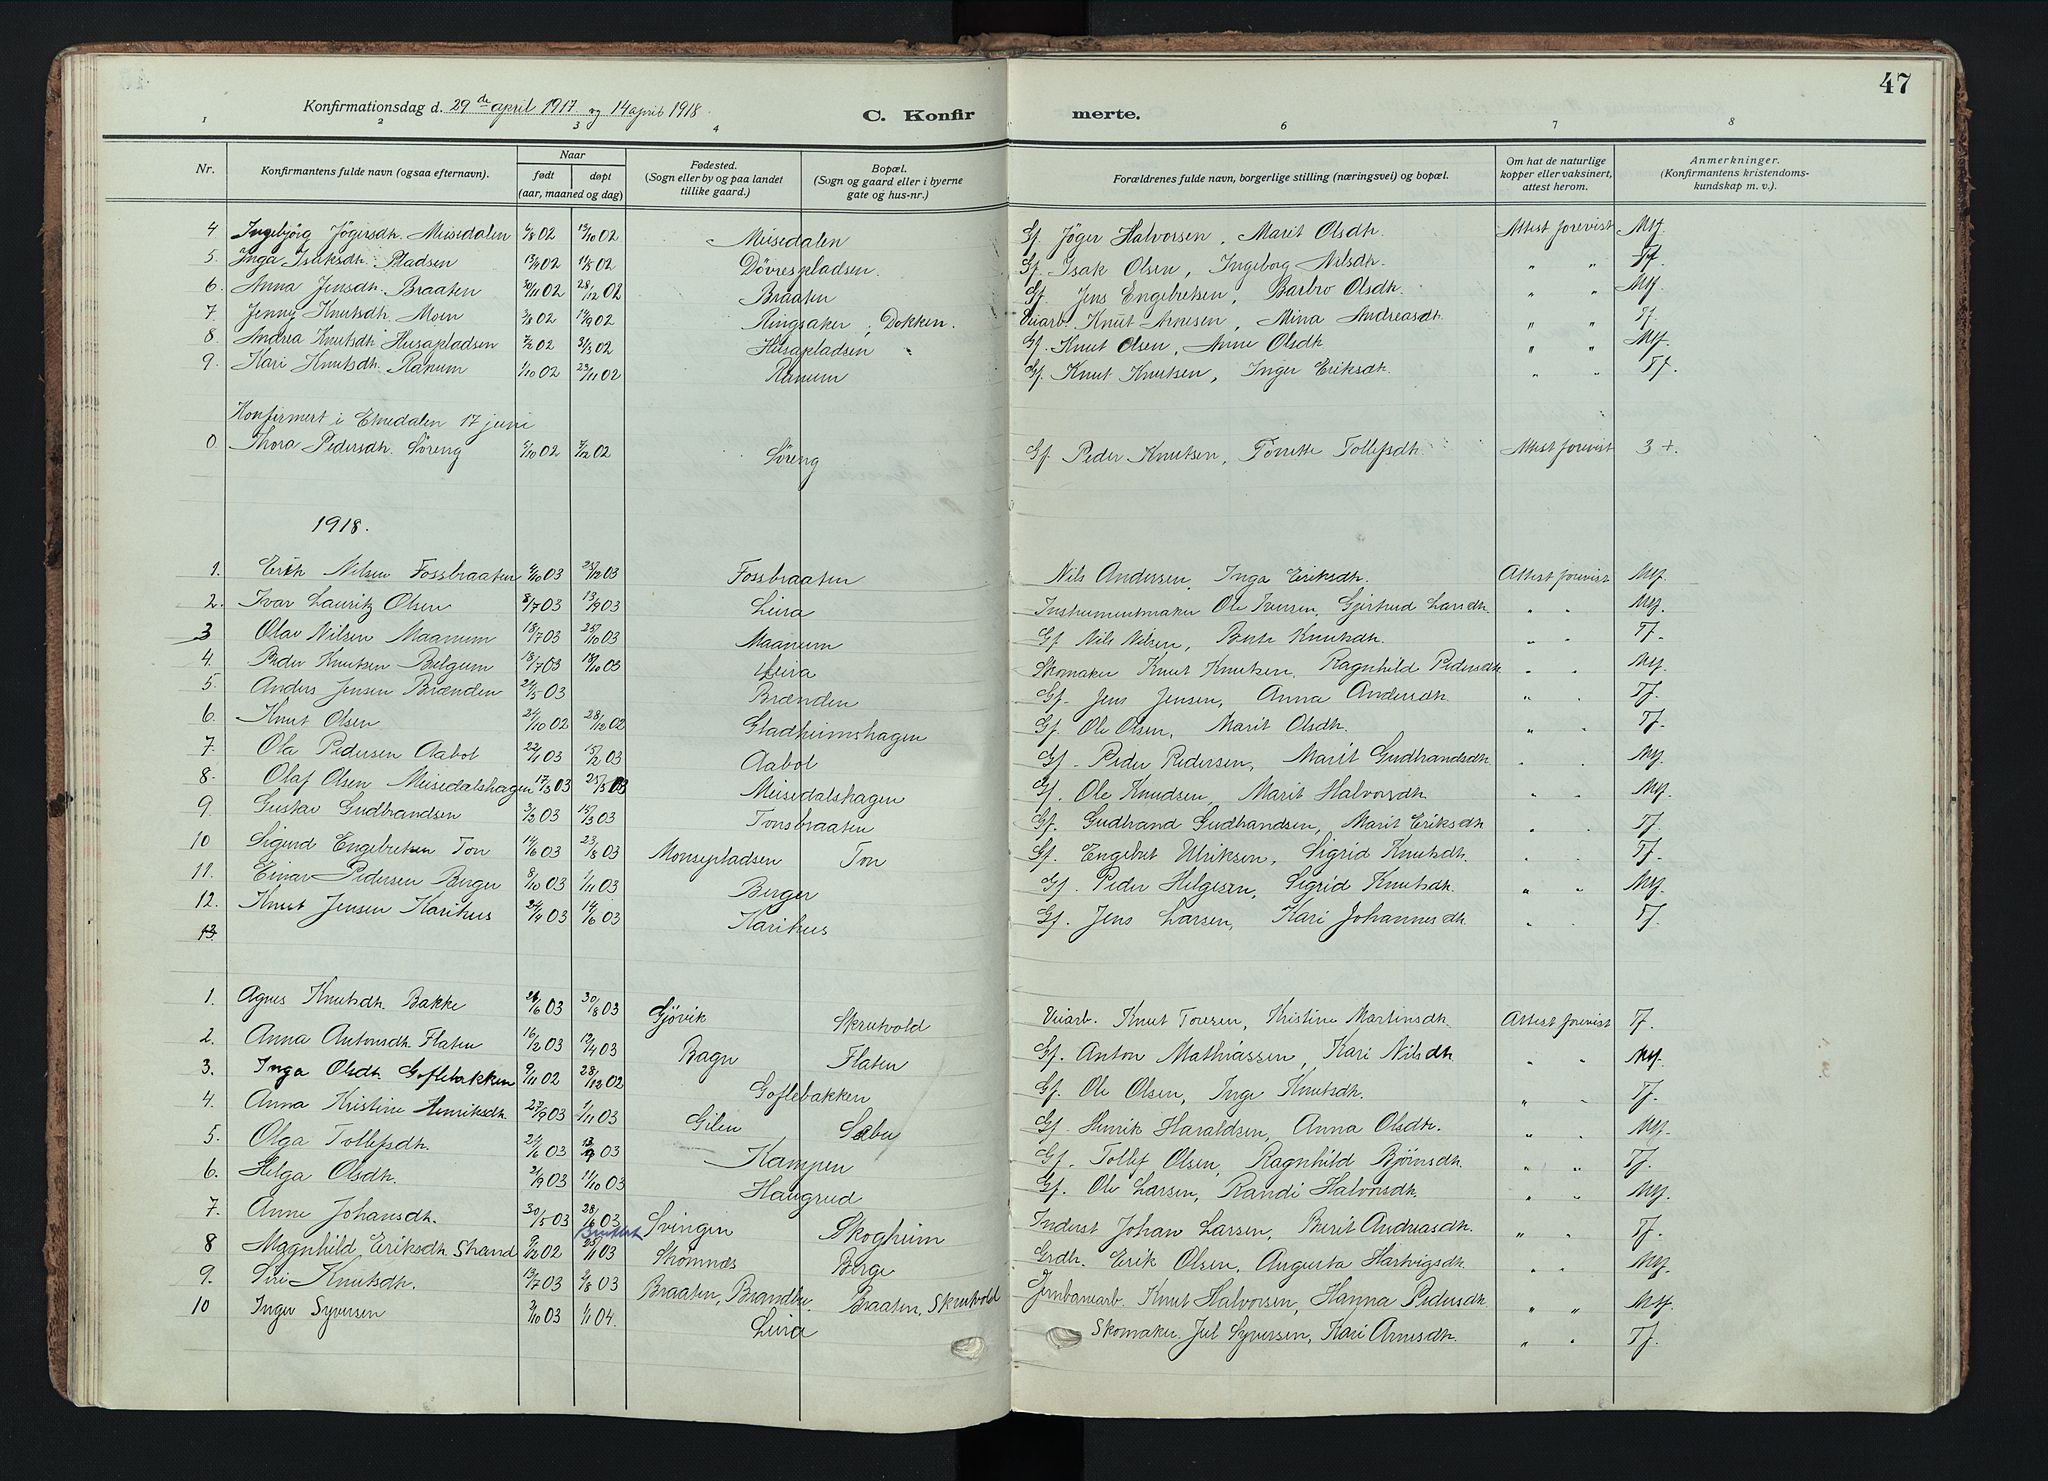 47
Konfirmationsdag d. 29de april 1917 og 14 april 1918. C. Konfirmerte.
1 2 3 4 6 7 8
Nr. Konfirmantens fulde navn (ogsaa efternavn). Naar født døpt (aar, maaned og dag) Fødested. (Sogn eller by og paa landet tillike gaard.) Bopæl. (Sogn og gaard eller i byerne gate og hus-nr.) Forældrenes fulde navn, borgerlige stilling (næringsvei) og bopæl. Om hat de naturlige kopper eller vaksinert, attest herom. Anmerkninger. (Konfirmantens kristendomskundskap m. v.).
4 Ingebjørg Jøgersdh. Meisedalen /8 02 13/10 02 Meisedalen Gf. Jøger Halvorsen, Marit Olsdh. Attest forevist Mtf.
5. Inga Isaksdh. Pladsen 13/4 02 11/5 02 Døvrespladsen. Gf. Isak Olsen, Ingeborg Nilsdh. " " Tf.
6. Anna Jensdh. Braaten 30/11 02 28/12 02 Braaten Gf. Jens Engebretsen, Barbro Olsdh. " " Mtf.
7 Jenny Knutsdh. Moen 3/8 02 14/9 02 Ringsaker, Dokken. Veiarb. Knut Arnesen, Mina Andreasdh. " " Tf.
8 Andrea Knutsdh Husapladsen 7/2 02 31/3 02 Husapladsen Gf. Knut Olsen, Anne Olsdh " " Mtf.
9. Kari Knutsdh. Ranum 1/10 02 23/11 02 Ranum Gf. Knut Knutsen, Inger Eriksdh. " " Tf.
Konfirmert i Etnedalen 17 juni
0 Thora Pedersdh. Søreng 5/10 02 7/12 02 Søreng Gf. Peder Knutsen, Tonette Tollefsdh. Attest forevist 3+.
1918.
1. Erik Nilsen Fossbraaten /10 03 25/12 03 Fossbraaten Nils Andersen, Inga Eriksdh. Attest forevist Mtf.
2. Ivar Lauritz Olsen 8/7 03 13/9 03 Leira Instrumentmaker Ole Iversen, Gjertrud Larsdh. " " Mtf.
3 Olav Nilsen Maanum 18/7 03 25/10 03 Maanum Gf Nils Nilsen, Berte Knutsdh. " " Tf.
4. Peder Knutsen Belgum 18/7 03 18/10 03 Leira Skomaker Knut Knutsen, Ragnhild Pedersdh " " Mtf.
5. Anders Jensen Brænden 24/5 03 Brænden Gf. Jens Jensen, Anna Andersdh. " " Tf.
6. Knut Olsen 24/10 02 28/12 02 Gladheimshagen Gf. Ole Olsen, Marit Olsdh. " " Tf.
7. Ola Pedersen Aabol 22/1 03 15/2 03 Aabol Gf. Peder Pedersen, Marit Gudbrandsdh. " " Mtf.
8. Olaf Olsen Meisedalshagen 17/3 03 25/5 03 Meisedalshagen Gf. Ole Knudsen, Marit Halvorsdh " " Mtf.
9 Gustav Gudbrandsen 3/2 03 15/3 03 Tonsbraaten Gf. Gudbrand Gudbrandsen, Marit Eriksdh " " Tf.
10 Sigurd Engebretsen Ton 14/6 03 23/8 03 Monsepladsen Ton Gf. Engebret Ulriksen, Sigrid Knutsdh. " " Tf.
11. Einar Pedersen Berger 8/10 03 1/11 03 Berger Gf. Peder Helgesen, Sigrid Knutsdh. " " Mtf.
12. Knut Jensen Karihus 24/4 03 14/6 03 Karihus Gf. Jens Larsen, Kari Johannesdh. " " Tf.
13.
1. Agnes Knutsdh. Bakke 24/6 03 30/8 03 Gjøvik Skrutvold Veiarb. Knut Toresen, Kristine Martinsdh. Attest forevist Tf.
2. Anna Antonsdh. Flaten 16/2 03 12/4 03 Bagn Flaten Gf. Anton Mathiassen, Kari Nilsdh " " Mtf.
3. Inga Olsdh. Goflebakken 9/11 02 28/12 02 Goflebakken Gf. Ole Olsen, Inge Knutsdh. " " Tf.
4. Anna Kristine Henriksdh. 27/9 03 1/11 03 Gilen Sæbu Gf. Henrik Haraldsen, Anna Olsdh. " " Mtf.
5. Olga Tollefsdh. 24/6 03 13/9 03 Kampen Gf. Tollef Olsen, Ragnhild Bjørnsdh. " " Tf.
6. Helga Olsdh. 3/9 03 11/10 03 Haugrud Gf. Ole Larsen, Randi Halvorsdh. " " Mtf.
7. Anne Johansdh. 30/5 03 28/6 03 Svingen Skogheim Inderst Johan Larsen, Berit Andreasdh. " " Tf.
8 Magnhild Eriksdh. Strand 9/12 02 25/1 03 Strømnæs Berge Grdh. Erik Olsen, Augusta Hartvigsdh. " " Mtf.
9. Siri Knutsdh. 13/7 03 /8 03 Braaten, Brandbu. Braaten, Skrutvold Jernbanearb. Knut Halvorsen, Hanna Pedersdh. " " Mtf.
10 Inger Syversen 3/10 03 1/1 04. Leira Skomaker. Jul Syversen, Kari Arnesdh. " " Tf.